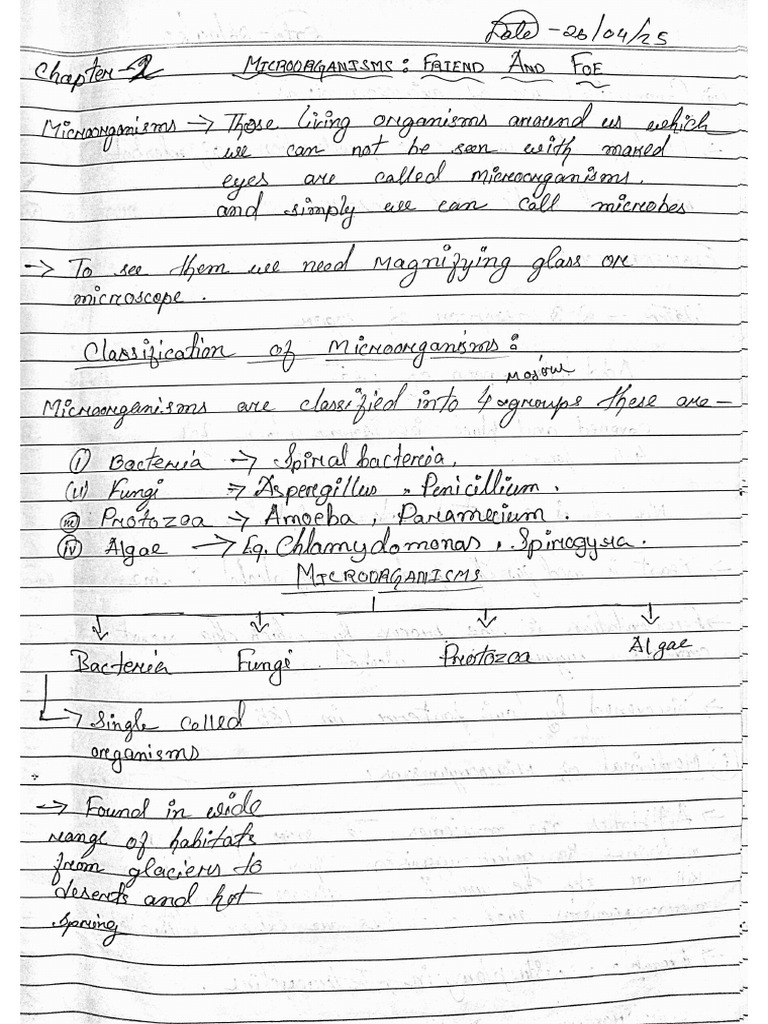 Date - 26/04/25
Chapter-2 MICROORGANISMS: FRIEND AND FOE
Microorganisms → Those living organisms around us which
we can not be seen with maked
eyes are called microorganisms.
and simply we can call microbes
→ To see them we need Magnifying glass or
microscope.
Classification of Microorganisms:
major
Microorganisms are classified into 4 groups these are-
(i) Bacteria → Spiral bacteria,
(ii) Fungi → Asperegillus, Penicillium.
(iii) Protozoa → Amoeba, Paramecium.
(iv) Algae → Eg. Chlamydomonas, Spirogyra.
MICROORGANICMS
Bacteria Fungi Protozoa Algae
→ Single called
organisms
→ Found in wide
range of habitats
from glaciers to
deserts and hot
spring